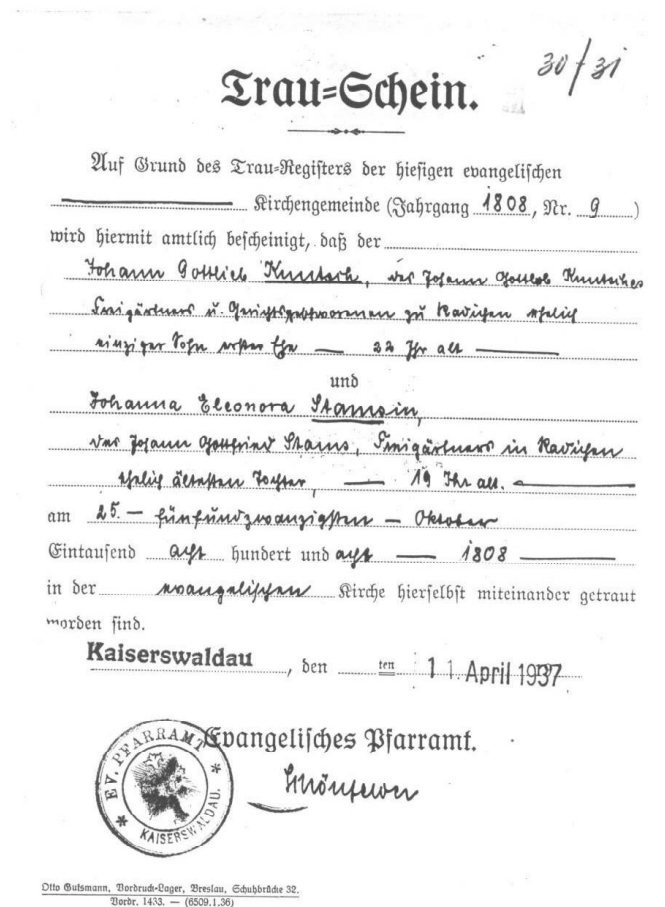 30/31
Trau-Schein.
Auf Grund des Trau-Registers der hiesigen evangelischen
Kirchengemeinde (Jahrgang 1808, Nr. 9)
wird hiermit amtlich bescheinigt, daß der
Johann Gottlieb Kuntsch, des Johann Gottlob Kuntsches
Freigärtners u. Gerichtsgeschworenen zu Radichen ehelich
einziger Sohn erster Ehe — 22 Jhr alt —
und
Johanna Eleonora Stamsin,
des Johann Gottfried Stams, Freigärtners in Radichen
ehelich ältesten Tochter, — 19 Jhr alt. —
am 25. — fünfundzwanzigsten — Oktober
Eintausend acht hundert und acht — 1808 —
in der evangelischen Kirche hierselbst miteinander getraut
worden sind.
Kaiserswaldau, den ten 11. April 1937
Evangelisches Pfarramt.
EV. PFARRAMT
KAISERSWALDAU.
Otto Gutsmann, Vordruck-Lager, Breslau, Schuhbrücke 32.
Vordr. 1433. — (6509.1.36)